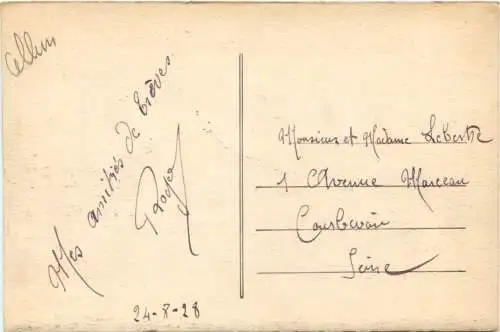 Mes amitiés de Trèves.
Roger
24-8-28
Monsieur et Madame
1 Avenue Marceau
Courbevoie
Seine